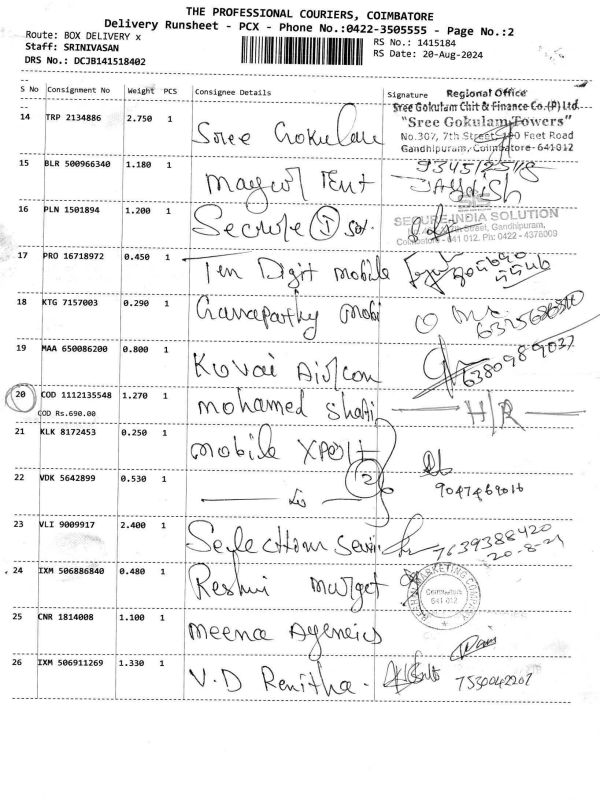 THE PROFESSIONAL COURIERS, COIMBATORE
Delivery Runsheet - PCX - Phone No.:0422-3505555 - Page No.:2
Route: BOX DELIVERY x
Staff: SRINIVASAN
DRS No.: DCJB141518402
RS No.: 1415184
RS Date: 20-Aug-2024
S No Consignment No Weight PCS Consignee Details Signature
Regional Office
Sree Gokulam Chit & Finance Co.(P) Ltd.
"Sree Gokulam Towers"
No.307, 7th Street, 100 Feet Road
Gandhipuram, Coimbatore-641012
14 TRP 2134886 2.750 1 Sree Gokulam
15 BLR 500966340 1.180 1 Mayur Tent
16 PLN 1501894 1.200 1 Secure I Sol.
SECURE INDIA SOLUTION
Street, Gandhipuram,
Coimbatore - 641 012. Ph: 0422 - 4378009
17 PRO 16718972 0.450 1 Ten Digit mobile
18 KTG 7157003 0.290 1 Ganapathy mobi
19 MAA 650086200 0.800 1 Kovai Aircon 6380989037
20 COD 1112135548 1.270 1 mohamed Shafi H/R
COD Rs.690.00
21 KLK 8172453 0.250 1 mobile XPert
22 VDK 5642899 0.530 1 2
9047469016
23 VLI 9009917 2.400 1 7639388420
20-8-24
24 IXM 506886840 0.480 1 Reshmi
MARKETING COMPANY
Coimbatore
641 012
25 CNR 1814008 1.100 1 Meena Agencies
26 IXM 506911269 1.330 1 V.D Renitha. 7530042207